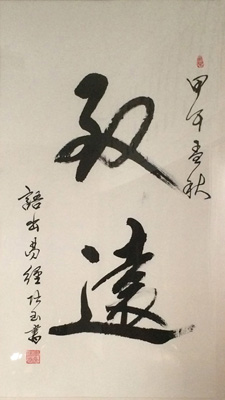 甲午春秋
致遠
語出易經玉書